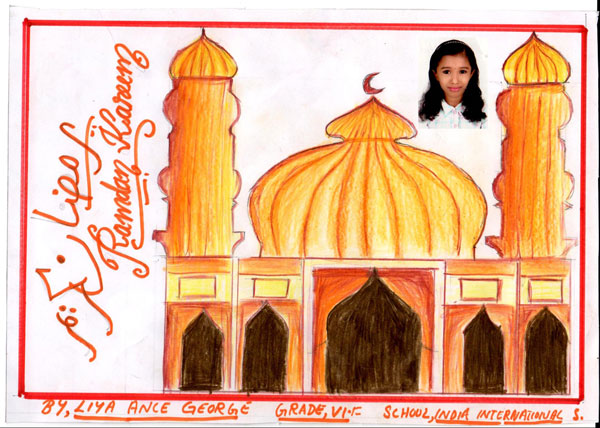 رمضان كريم
Ramdan Kareem
BY, LIYA ANCE GEORGE GRADE, VI-F SCHOOL, INDIA INTERNATIONAL S.